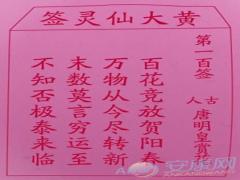 黄大仙灵签
第一百签
古人
唐明皇赏
百花竞放贺阳春
万物从今尽转新
末数莫言穷运至
不知否极泰来临